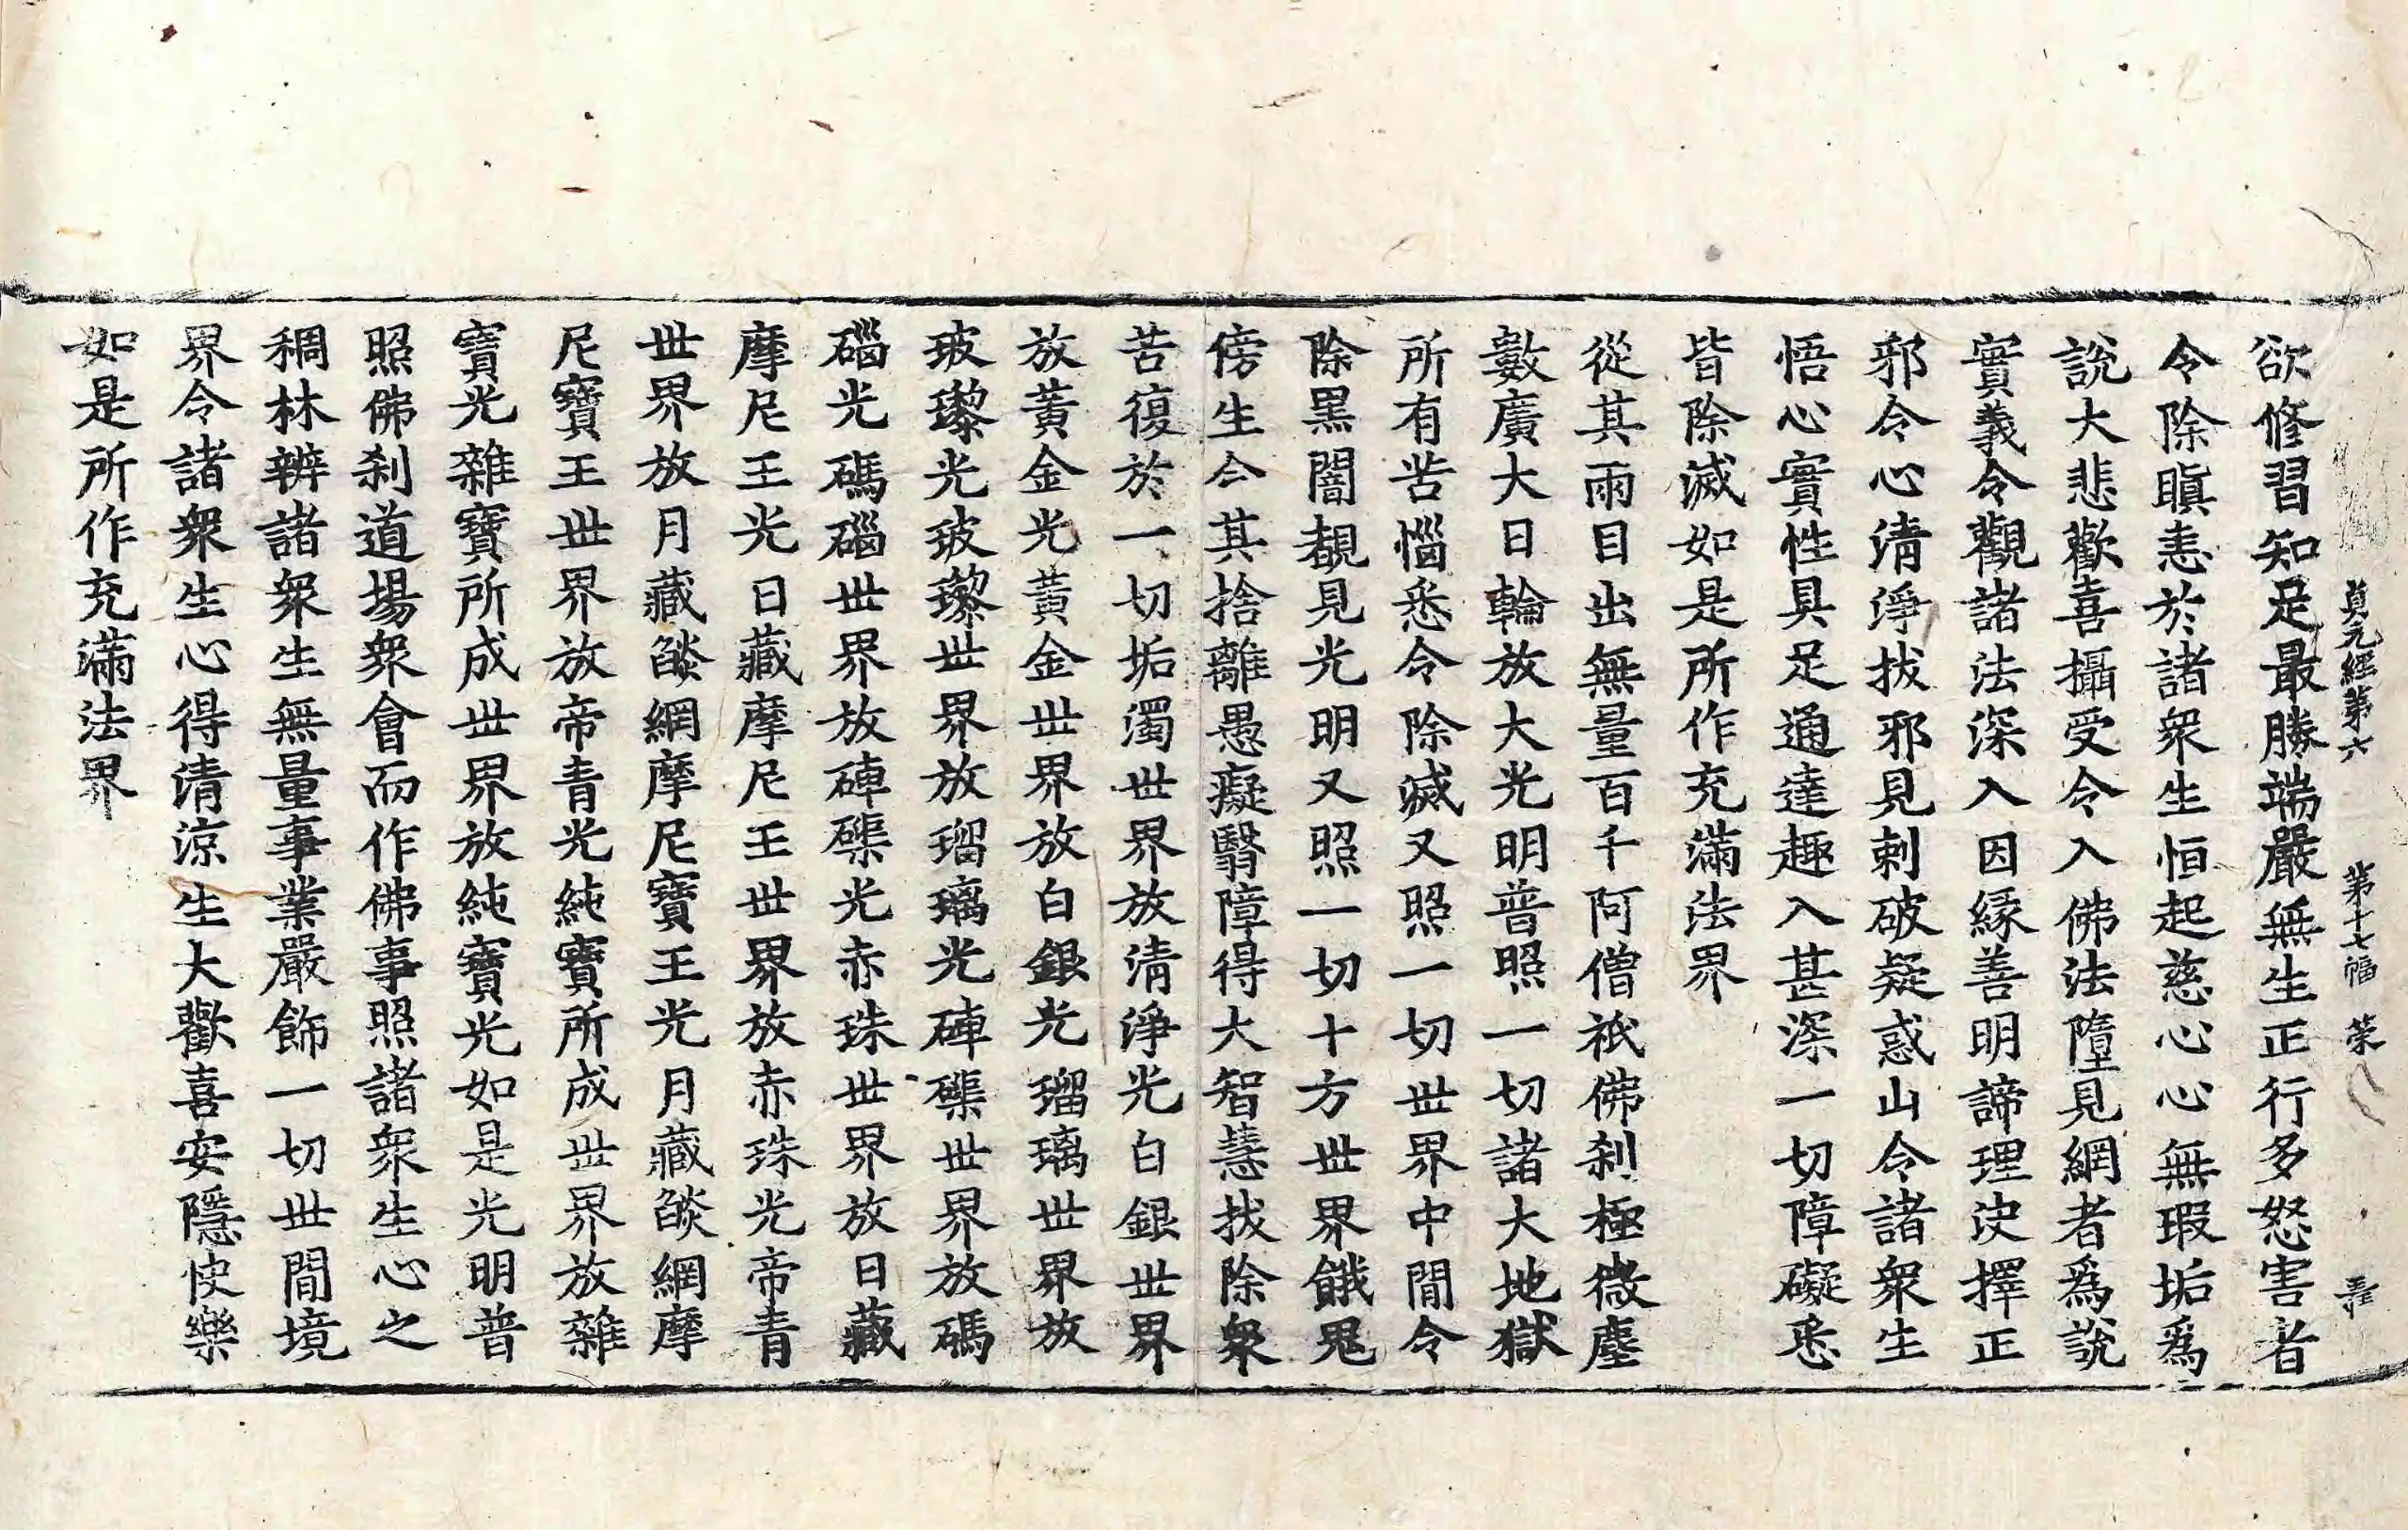 貞元經第六 第十七幅 荣
欲修習知足最勝端嚴無生正行多怒害者
令除瞋恚於諸衆生恒起慈心心無瑕垢爲
說大悲歡喜攝受令入佛法墮見網者爲說
實義令觀諸法深入因緣善明諦理决擇正
邪令心清淨拔邪見刺破疑惑山令諸衆生
悟心實性具足通達趣入甚深一切障礙悉
皆除滅如是所作充滿法界
從其兩目出無量百千阿僧祇佛刹極微塵
數廣大日輪放大光明普照一切諸大地獄
所有苦惱悉令除滅又照一切世界中間令
除黑闇覩見光明又照一切十方世界餓鬼
傍生令其捨離愚癡翳障得大智慧拔除衆
苦復於一切垢濁世界放清淨光白銀世界
放黃金光黃金世界放白銀光瑠璃世界放
玻瓈光玻瓈世界放瑠璃光硨磲世界放碼
碯光碼碯世界放硨磲光赤珠世界放日藏
摩尼王光日藏摩尼王世界放赤珠光帝青
世界放月藏燄網摩尼寶王光月藏燄網摩
尼寶王世界放帝青光純寶所成世界放雜
寶光雜寶所成世界放純寶光如是光明普
照佛刹道場衆會而作佛事照諸衆生心之
稠林辨諸衆生無量事業嚴飾一切世間境
界令諸衆生心得清涼生大歡喜安隱快樂
如是所作充滿法界